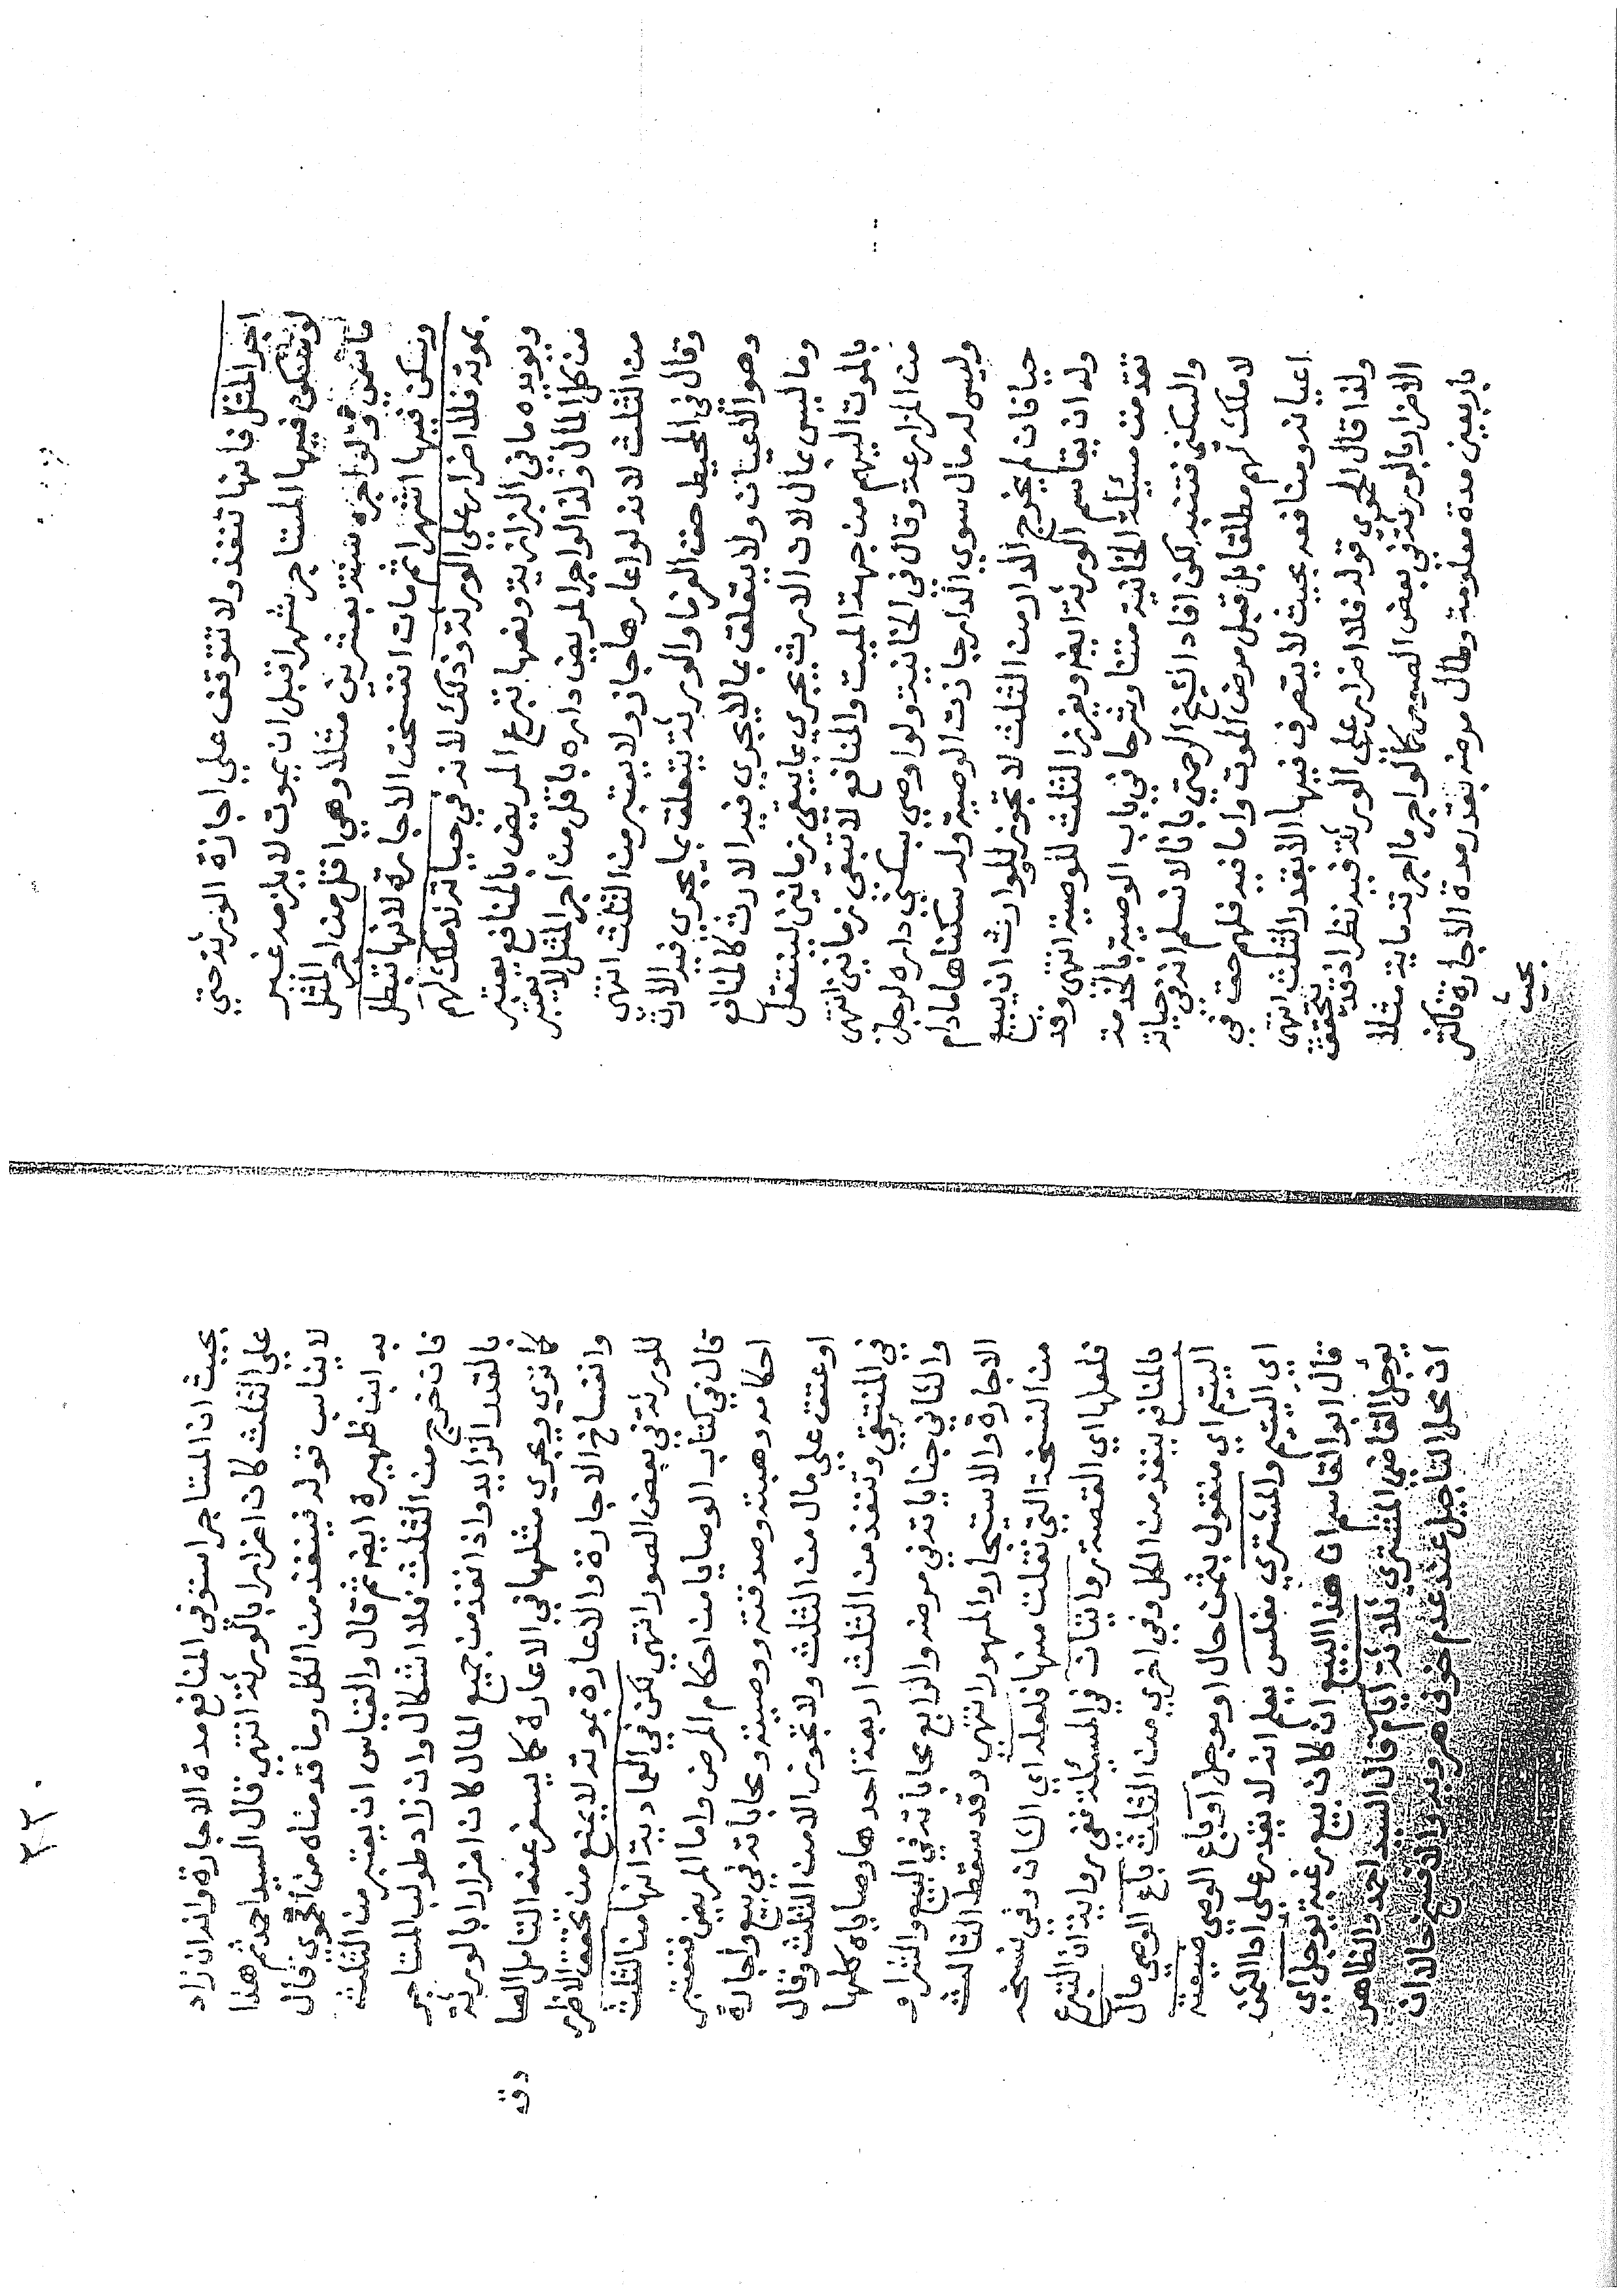 اجر المثل فانها تنفذ ولا تتوقف علي اجازة الورثة حتي
لو سكن فيها المستاجر شهرا قبل ان يموت لا يلزمه غير
ما سمي ولو اجره سنة بعشرين مثلا وهي اقل من اجر المثل
وسكن فيها اشهرا ثم مات انفسخت الاجارة لانها تبطل
بموته فلا اضرار علي الورثة وذلك لانه في حياته لا ملك لهم
ويويده ما في البزازية ونصها تبرع المريض بالمنافع يعتبر
من كل المال ولذا لو اجر المريض داره باقل من اجر المثل لا يعتبر
من الثلث لانه لو اعارها جاز ولا يعتبر من الثلث انتهي
وقال في المحيط حق الغرما والورثة يتعلق بما يجري فيه الارث
وهو الاعيان ولا يتعلق بما لا يجري فيه الارث كالمنافع
وما ليس بمال لان الارث يجري بما يبقي زمانين لينتقل
بالموت اليهم من جهة الميت والمنافع لا تبقي زمانين انتهي
من المزارعة وقال في الخانية ولو اوصي بسكني داره لرجل
وليس له مال سوي الدار جازت الوصية وله سكناها مادام
حيا فان لم يخرج الدار من الثلث لا تجوز للوارث ان يبيع
وله ان يقاسم الورثة ايضا ويفرز الثلث للوصية انتهي وقد
تقدمت مسئلة الخانية متنا وشرحا في باب الوصية بالخدمة
والسكني فتنبه لكن افاد الشيخ الرحمتي بانا لا نسلم انه في حياته
لا ملك لهم مطلقا بل قبل مرض الموت واما فيه فلهم حق في
اعيانه ومنافعه بحيث لا يتصرف فيها الا بقدر الثلث انتهي
ولذا قال الحموي قوله فلا اضرار علي الورثة فيه نظر اذ قد يتحقق
الاضرار بالورثة في بعض الصور كما لو اجر ما اجرته ماية مثلا
باربعين مدة معلومة وطال مرضه بقدر مدة الاجارة فاكثر
بحيث
٢٢٠
بحيث ان المستاجر استوفي المنافع مدة الاجارة وانه ان زاد
علي الثلث كان اضرارا بالورثة انتهي قال السيد احمد ثم هذا
لا يناسب قوله فينفذ من الكل وما قدمناه من الحموي قال
به ابن ظهيرة ايضا ثم قال والقياس ان يعتبر من الثلث
فان خرج من الثلث فلا اشكال وان زاد طولب المستاجر
بالقدر الزايد واذا نفذ من جميع المال كان اضرارا بالورثة
كما تري ويجري مثلها في الاعارة كما يسفر عنه التامل الصا
دق
وانفساخ الاجارة والاعارة بموته لا يمنع من تحقق الاضرار
للورثة في بعض الصور انتهي لكن في العمادية انها من الثلث
قال في كتاب الوصايا من احكام المرض واما المريض فتعتبر
احكامه وهبته وصدقته ووصيته ومحاباته في بيع واجارة
او عتق علي مال من الثلث ولا تجوز الا من الثلث وقال
في المنتقي وتنفذ من الثلث اربعة احدها وصاياه كلها
والثاني جناياته في مرضه والرابع محاباته في البيع والشراء
الاجارة والاستيجار والمهور انتهي وقد سقط الثالث
من النسخة التي نقلت منها فلعله اي الكان وفي نسخه
فلعلها اي القصة روايتان في المسئلة ففي رواية ان التبرع
بالمنافع ينفذ من الكل وفي اخري من الثلث باع الوصي مال
اليتيم اي منقول بثمن حال او موجل او باع الوصي ضيعة
اي اليتيم والمشتري مفلس يعلم انه لا يقدر علي ادا الثمن
قال ابو القاسم ان هذا البيع ان كان بيع رغبة يوجل اي
يوجل القاضي المشتري ثلاثة ايام قال السيد احمد والظاهر
ان محل التاجيل عند عدم خوف هروبه والا فسخ حالا ان